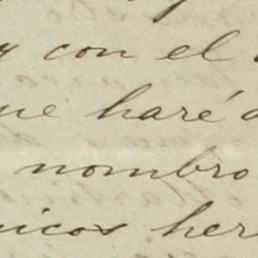 y con el
que haré a
nombro
nicos her